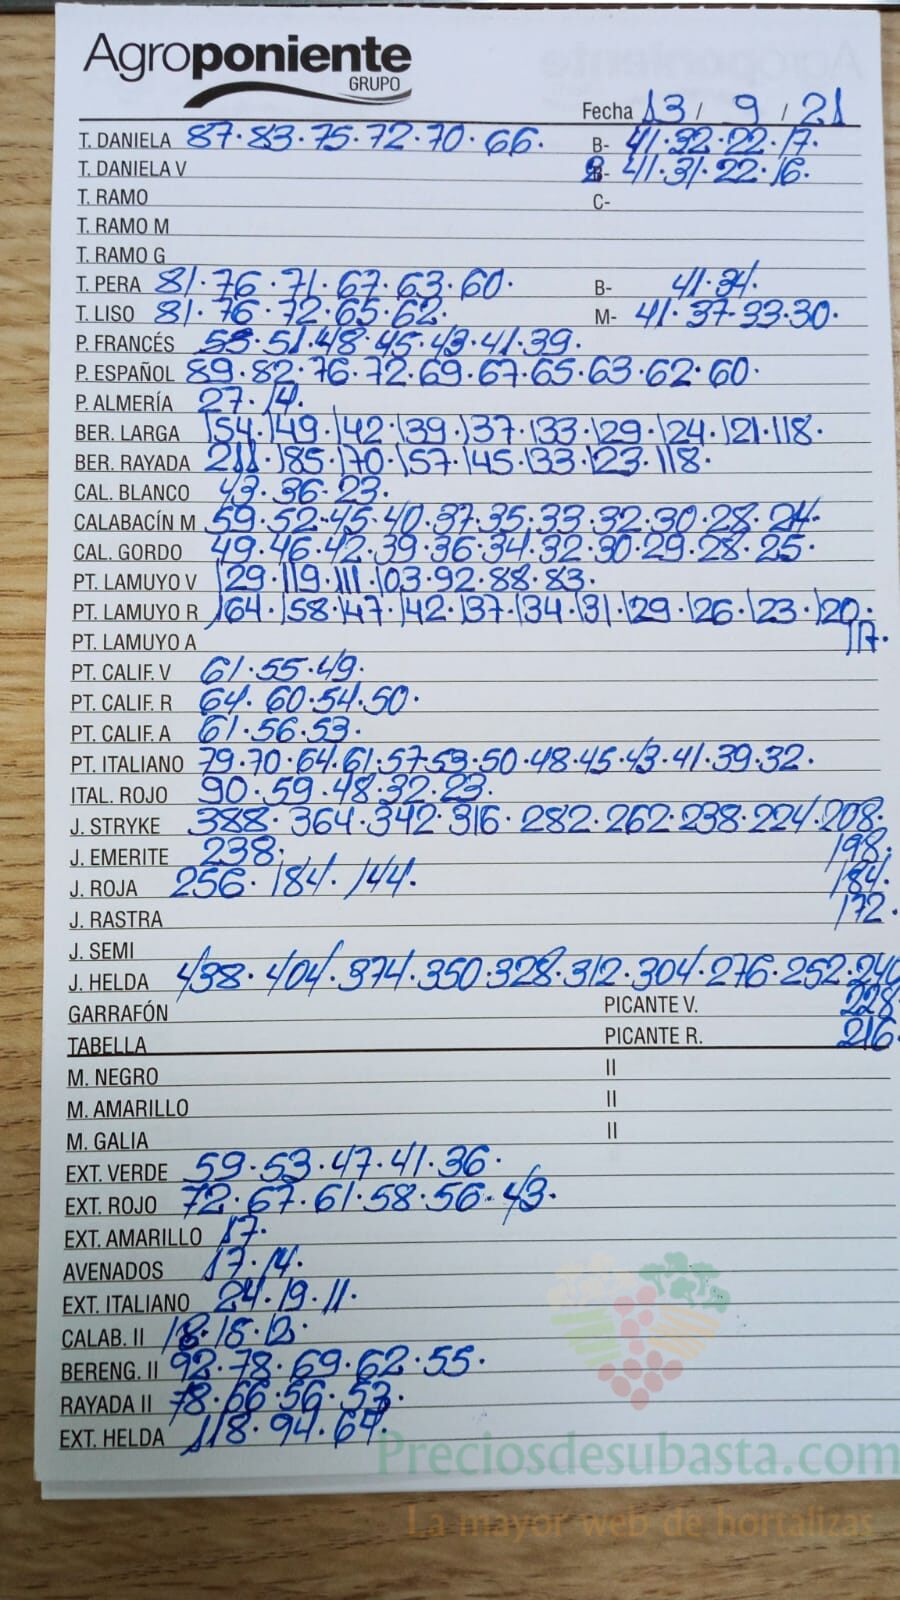 Agroponiente
GRUPO
Fecha 13 / 9 / 21
T. DANIELA 87·83·75·72·70·66. B- 41·32·22·17.
T. DANIELA V 41·31·22·16.
T. RAMO C-
T. RAMO M
T. RAMO G
T. PERA 81·76·71·67·63·60. B- 41·34.
T. LISO 81·76·72·65·62. M- 41·37·33·30.
P. FRANCÉS 55·51·48·45·43·41·39.
P. ESPAÑOL 89·82·76·72·69·67·65·63·62·60.
P. ALMERÍA 27·14.
BER. LARGA 154·149·142·139·137·133·129·124·121·118.
BER. RAYADA 211·185·170·157·145·133·123·118.
CAL. BLANCO 43·36·23.
CALABACÍN M 59·52·45·40·37·35·33·32·30·28·24.
CAL. GORDO 49·46·42·39·36·34·32·30·29·28·25.
PT. LAMUYO V 129·119·111·103·92·88·83.
PT. LAMUYO R 164·158·147·142·137·134·131·129·126·123·120.
PT. LAMUYO A 117.
PT. CALIF. V 61·55·49.
PT. CALIF. R 64·60·54·50.
PT. CALIF. A 61·56·53.
PT. ITALIANO 79·70·64·61·57·53·50·48·45·43·41·39·32.
ITAL. ROJO 90·59·48·32·23.
J. STRYKE 388·364·342·316·282·262·238·224·208.
J. EMERITE 238. 198.
J. ROJA 256·184·144. 184.
J. RASTRA 172.
J. SEMI
J. HELDA 438·404·374·350·328·312·304·276·252·240
GARRAFÓN PICANTE V. 228
TABELLA PICANTE R. 216.
M. NEGRO II
M. AMARILLO II
M. GALIA II
EXT. VERDE 59·53·47·41·36.
EXT. ROJO 72·67·61·58·56·43.
EXT. AMARILLO 17.
AVENADOS 17·14.
EXT. ITALIANO 24·19·11.
CALAB. II 18·15·12.
BERENG. II 92·78·69·62·55.
RAYADA II 78·66·56·53.
EXT. HELDA 118·94·67.
Preciosdesubasta.com
La mayor web de hortalizas